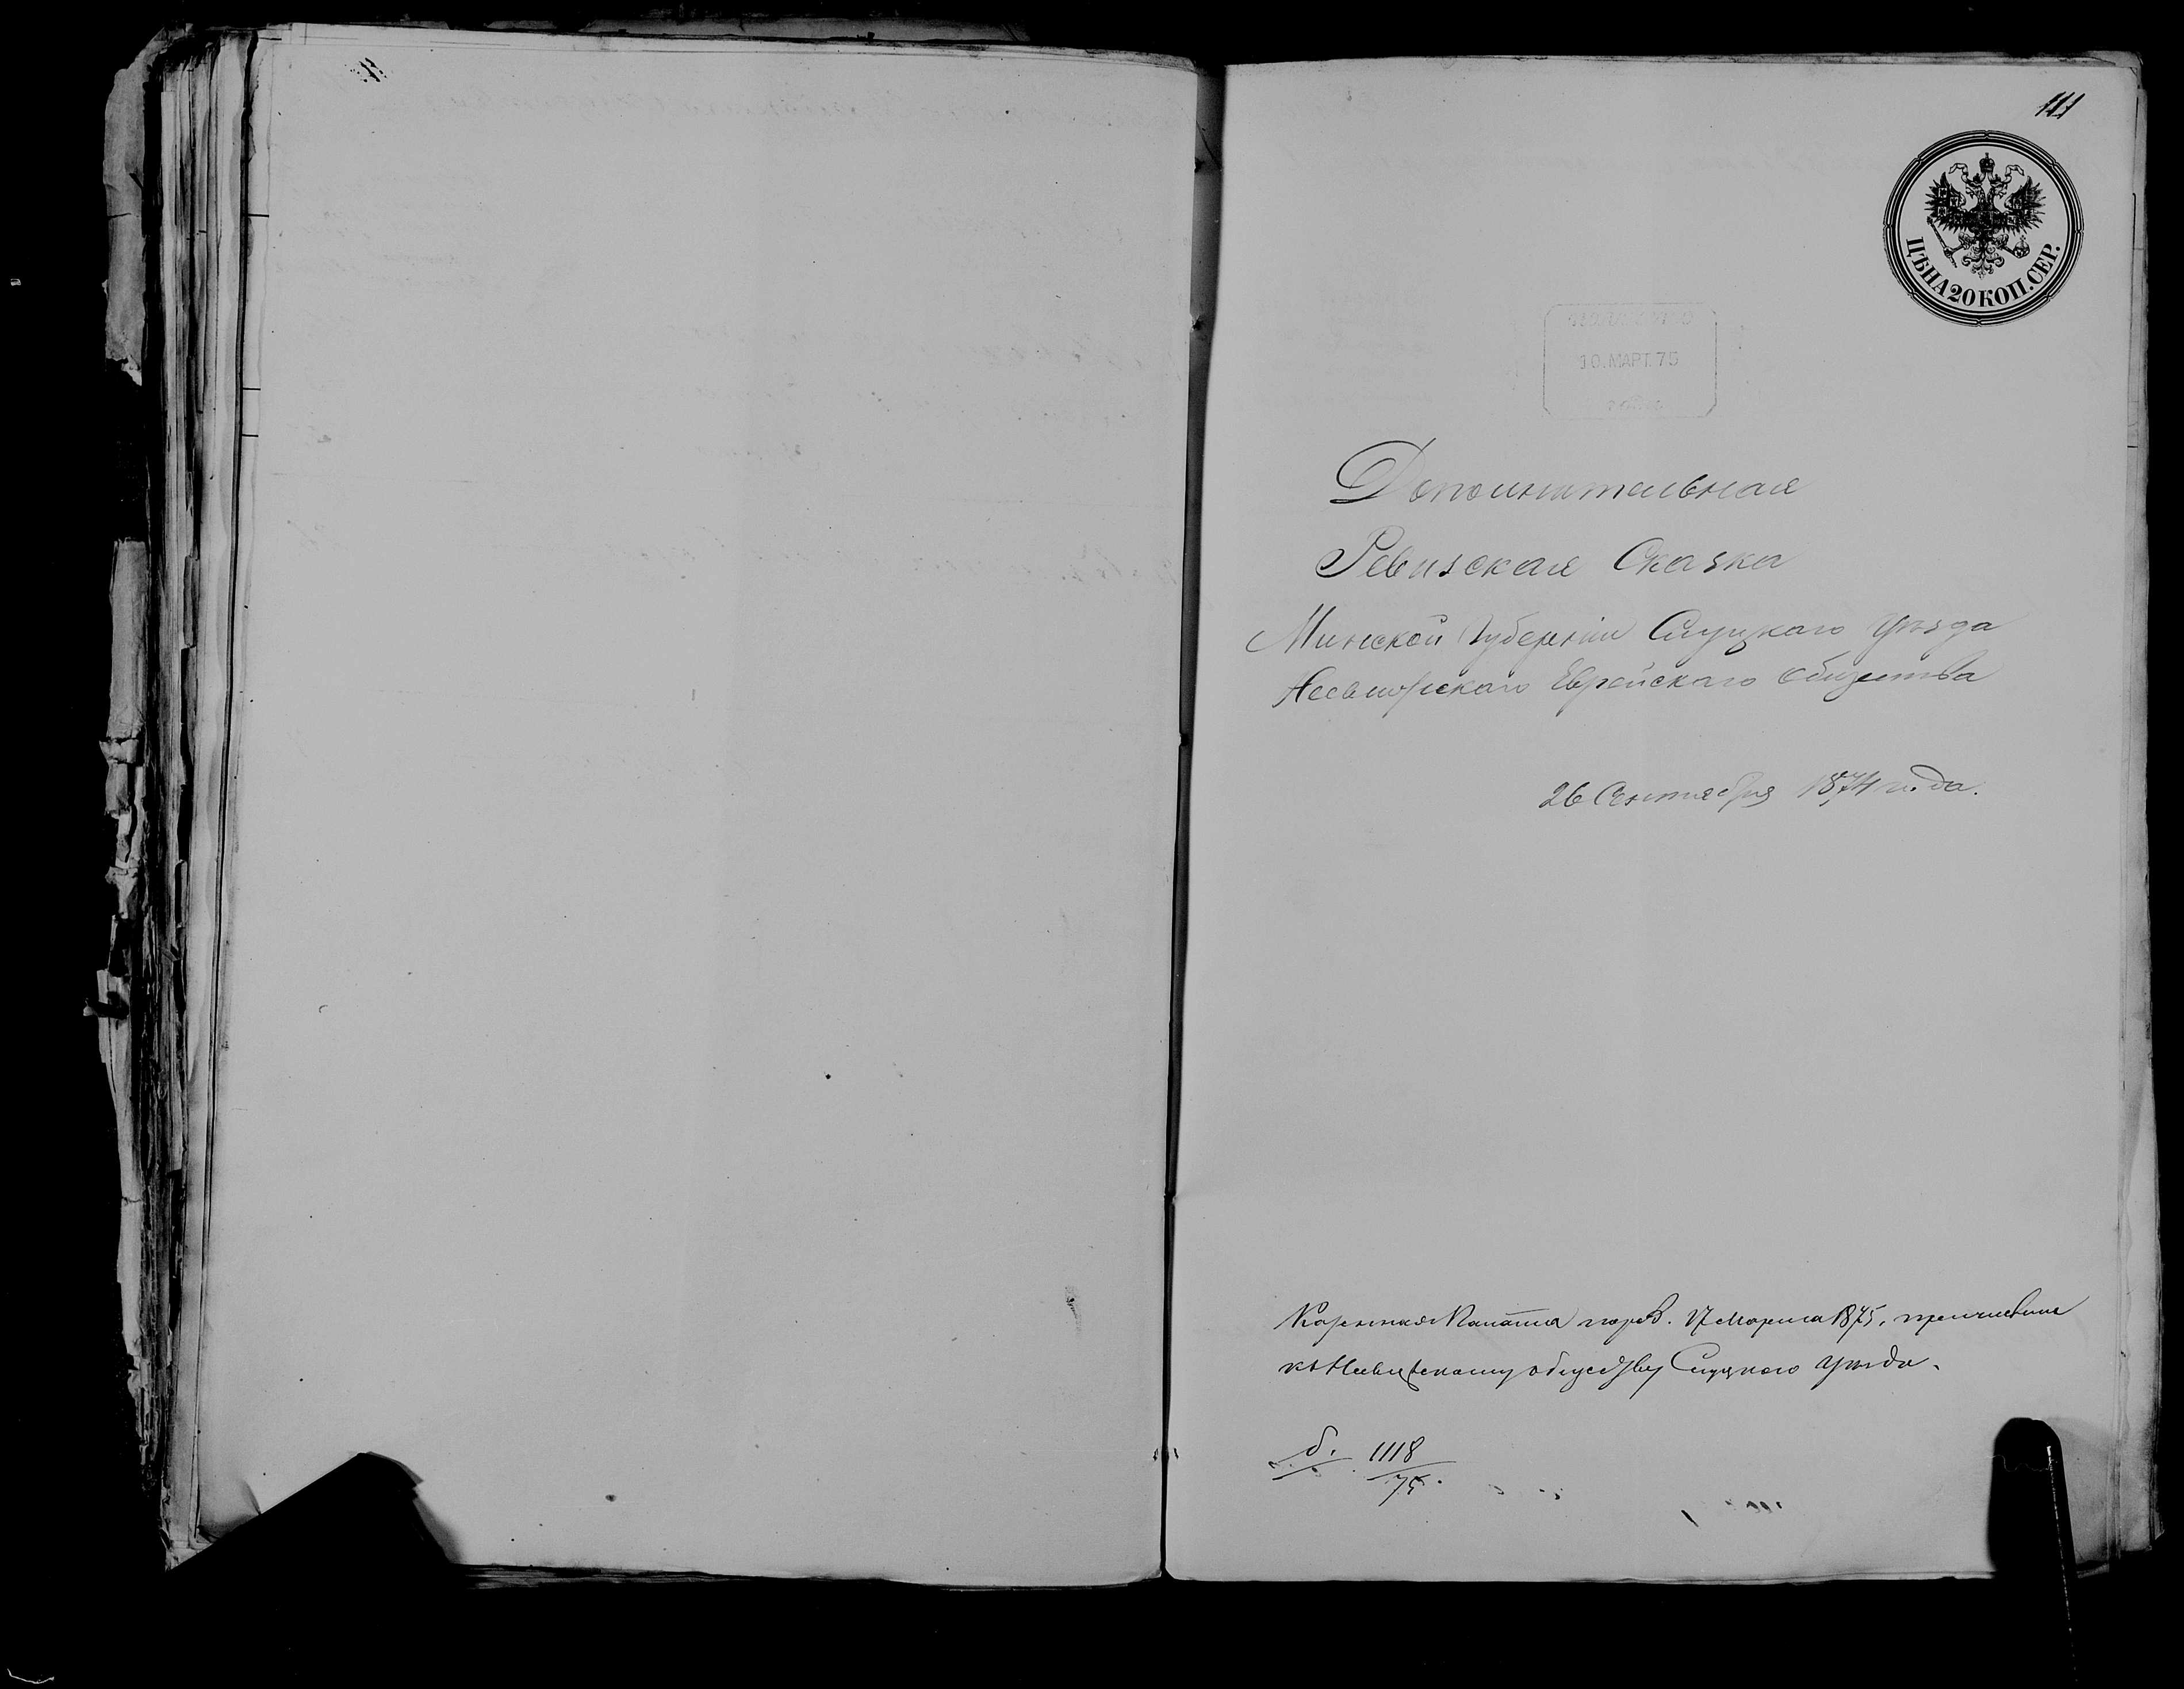 111
ЦѢНА 20 КОП. СЕР.
10. МАРТ. 75
Дополнительная
Ревизская Сказка
Минской Губерніи Слуцкаго уѣзда
Несвижскаго Еврейскаго Общества
26 Сентября 1874 года.
Казенная Палата 17 Марта 1875, причислила
къ Несвижскому обществу Слуцкого уѣзда.
1118
75.